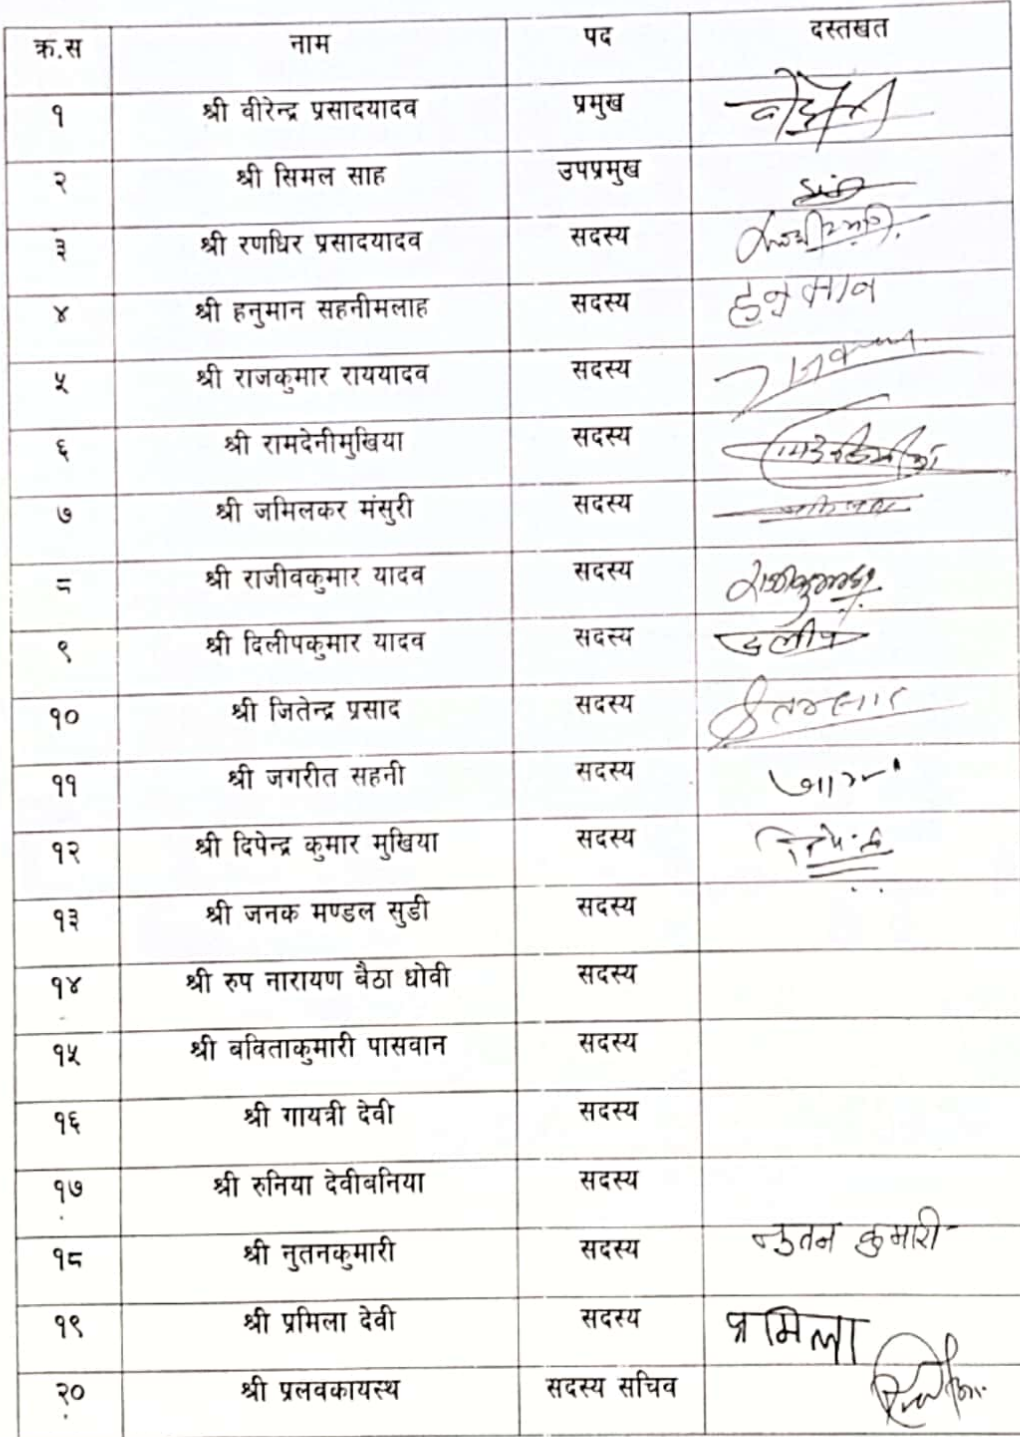 क्र.स नाम पद दस्तखत
१ श्री वीरेन्द्र प्रसादयादव प्रमुख
२ श्री सिमल साह उपप्रमुख
३ श्री रणधिर प्रसादयादव सदस्य
४ श्री हनुमान सहनीमलाह सदस्य हनुमान
५ श्री राजकुमार राययादव सदस्य
६ श्री रामदेनीमुखिया सदस्य
७ श्री जमिलकर मंसुरी सदस्य
८ श्री राजीवकुमार यादव सदस्य
९ श्री दिलीपकुमार यादव सदस्य
१० श्री जितेन्द्र प्रसाद सदस्य
११ श्री जगरीत सहनी सदस्य
१२ श्री दिपेन्द्र कुमार मुखिया सदस्य
१३ श्री जनक मण्डल सुडी सदस्य
१४ श्री रुप नारायण बैठा धोवी सदस्य
१५ श्री बविताकुमारी पासवान सदस्य
१६ श्री गायत्री देवी सदस्य
१७ श्री रुनिया देवीबनिया सदस्य
१८ श्री नुतनकुमारी सदस्य नुतन कुमारी
१९ श्री प्रमिला देवी सदस्य प्रमिला
२० श्री प्रलवकायस्थ सदस्य सचिव